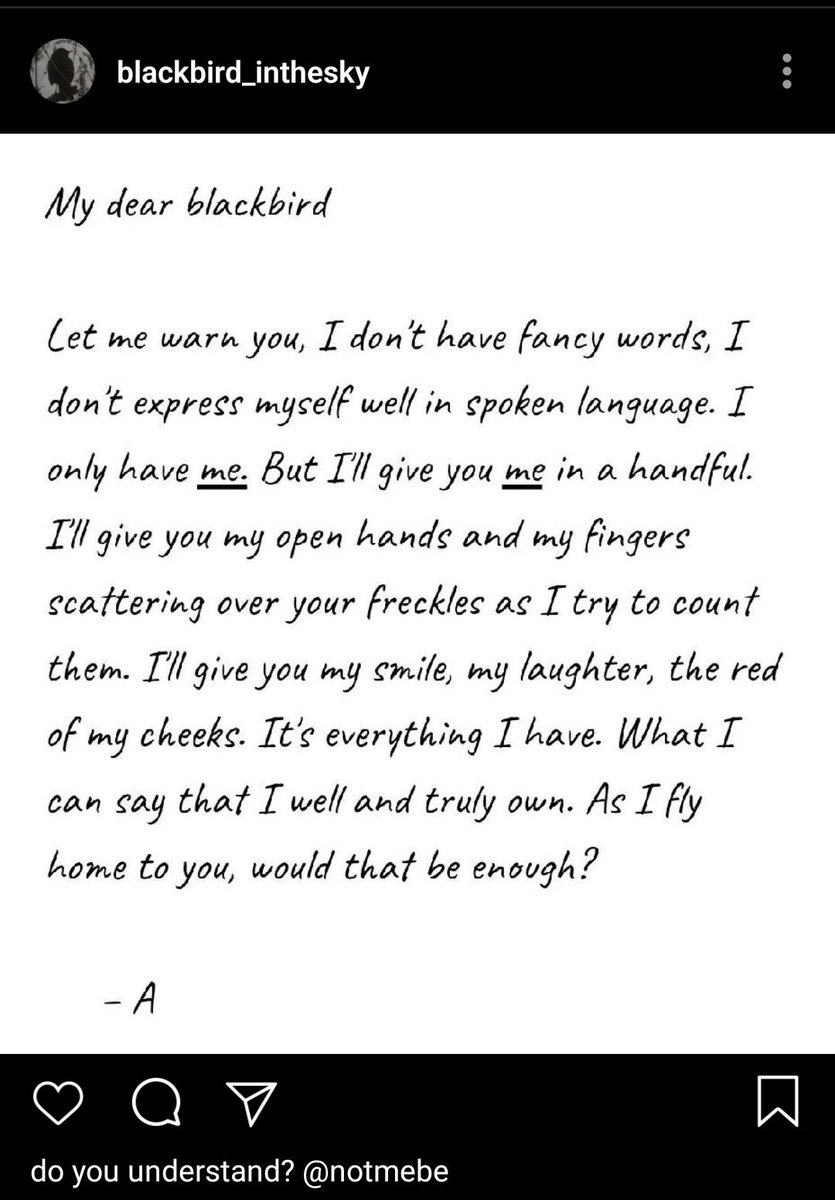 blackbird_inthesky
My dear blackbird
Let me warn you, I don't have fancy words, I
don't express myself well in spoken language. I
only have me. But I'll give you me in a handful.
I'll give you my open hands and my fingers
scattering over your freckles as I try to count
them. I'll give you my smile, my laughter, the red
of my cheeks. It's everything I have. What I
can say that I well and truly own. As I fly
home to you, would that be enough?
- A
do you understand? @notmebe